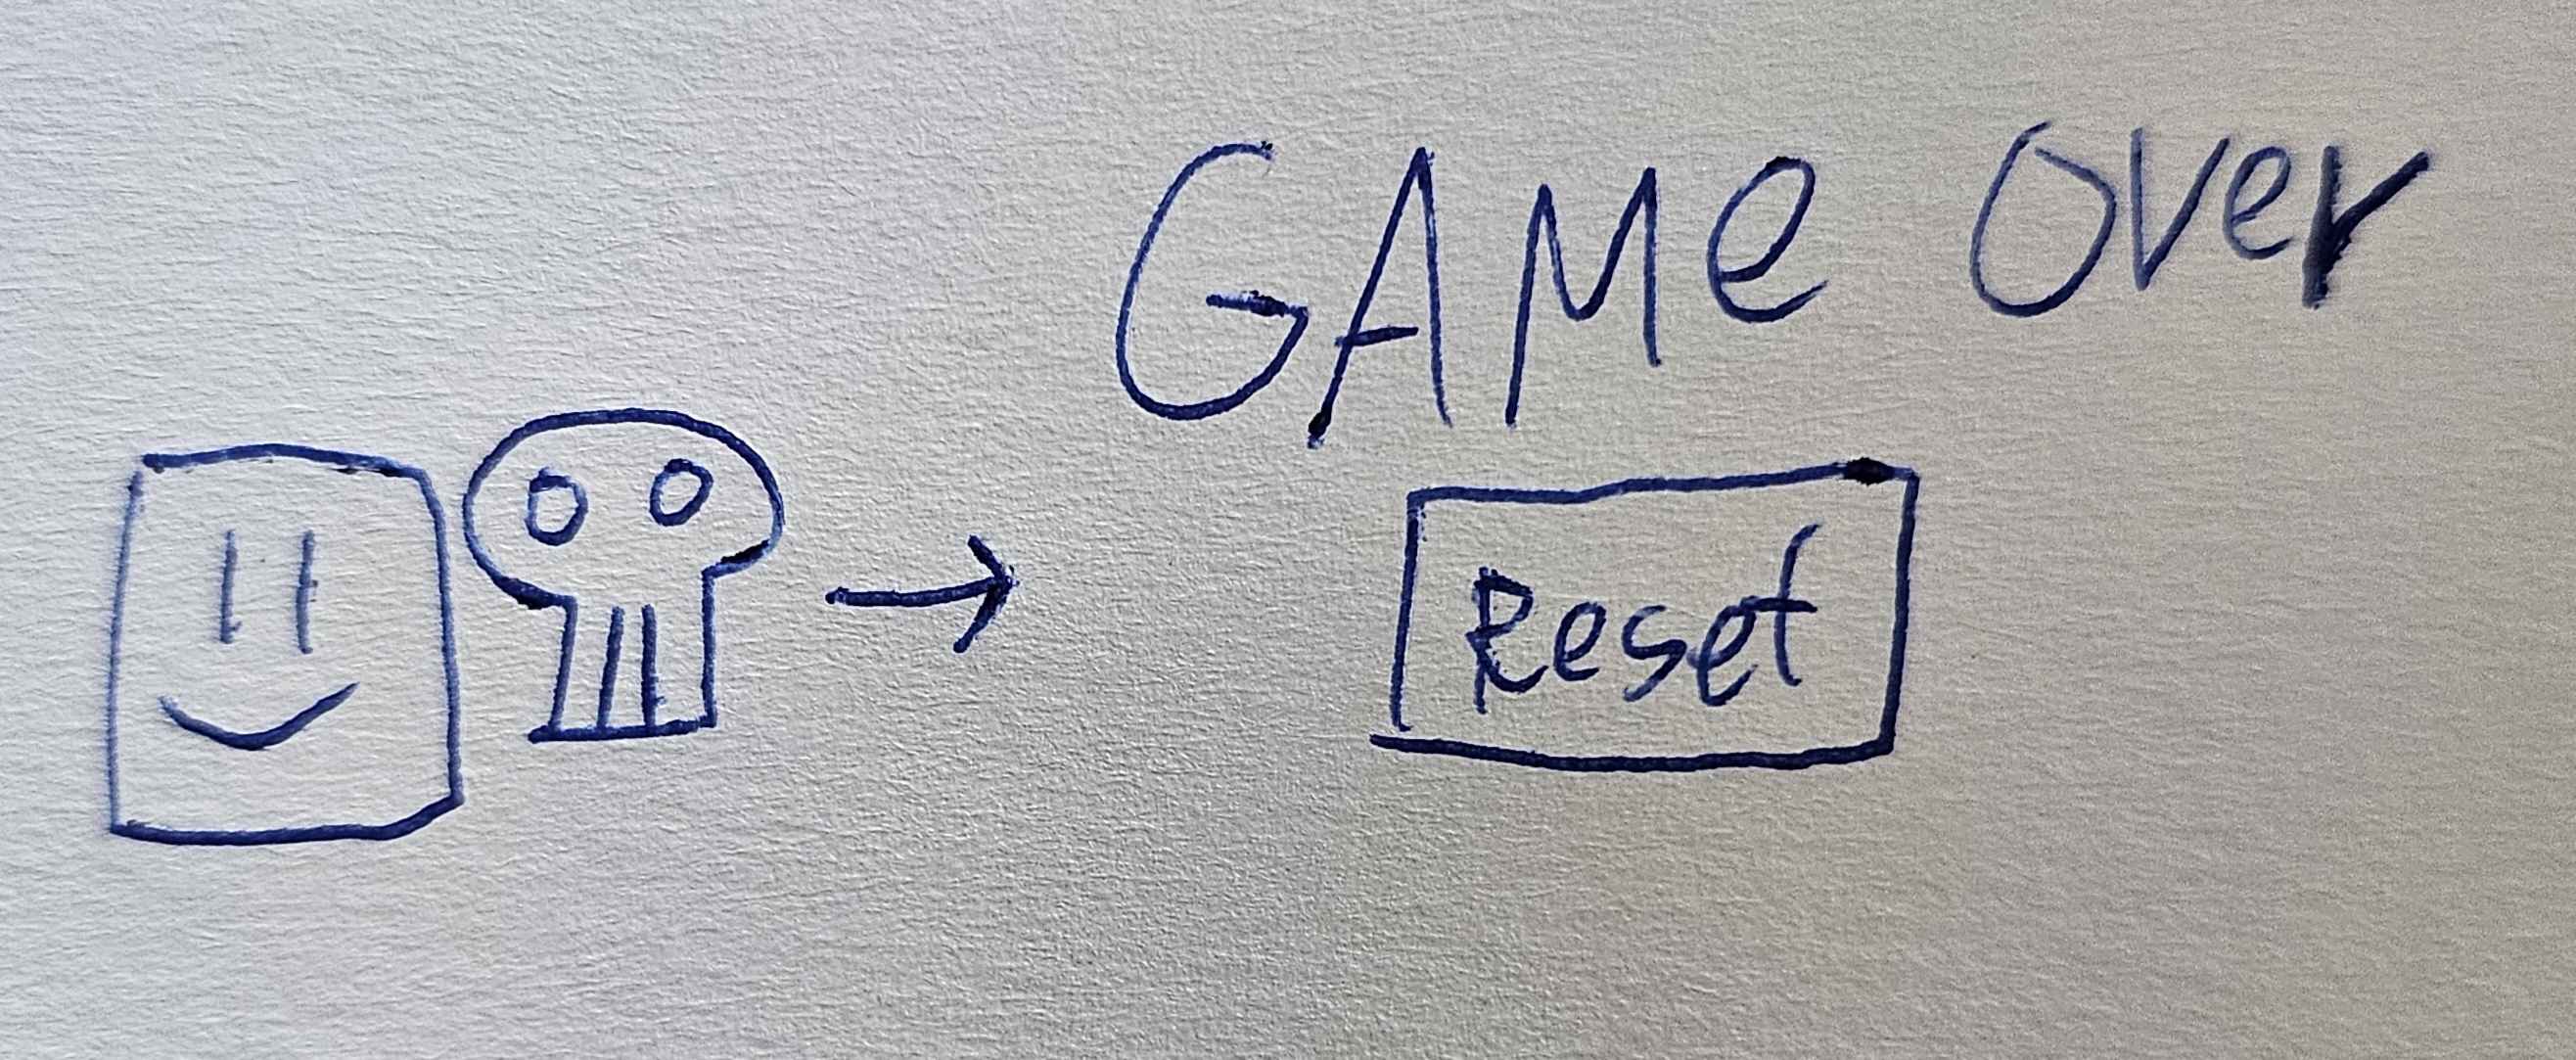 GAMe Over
Reset